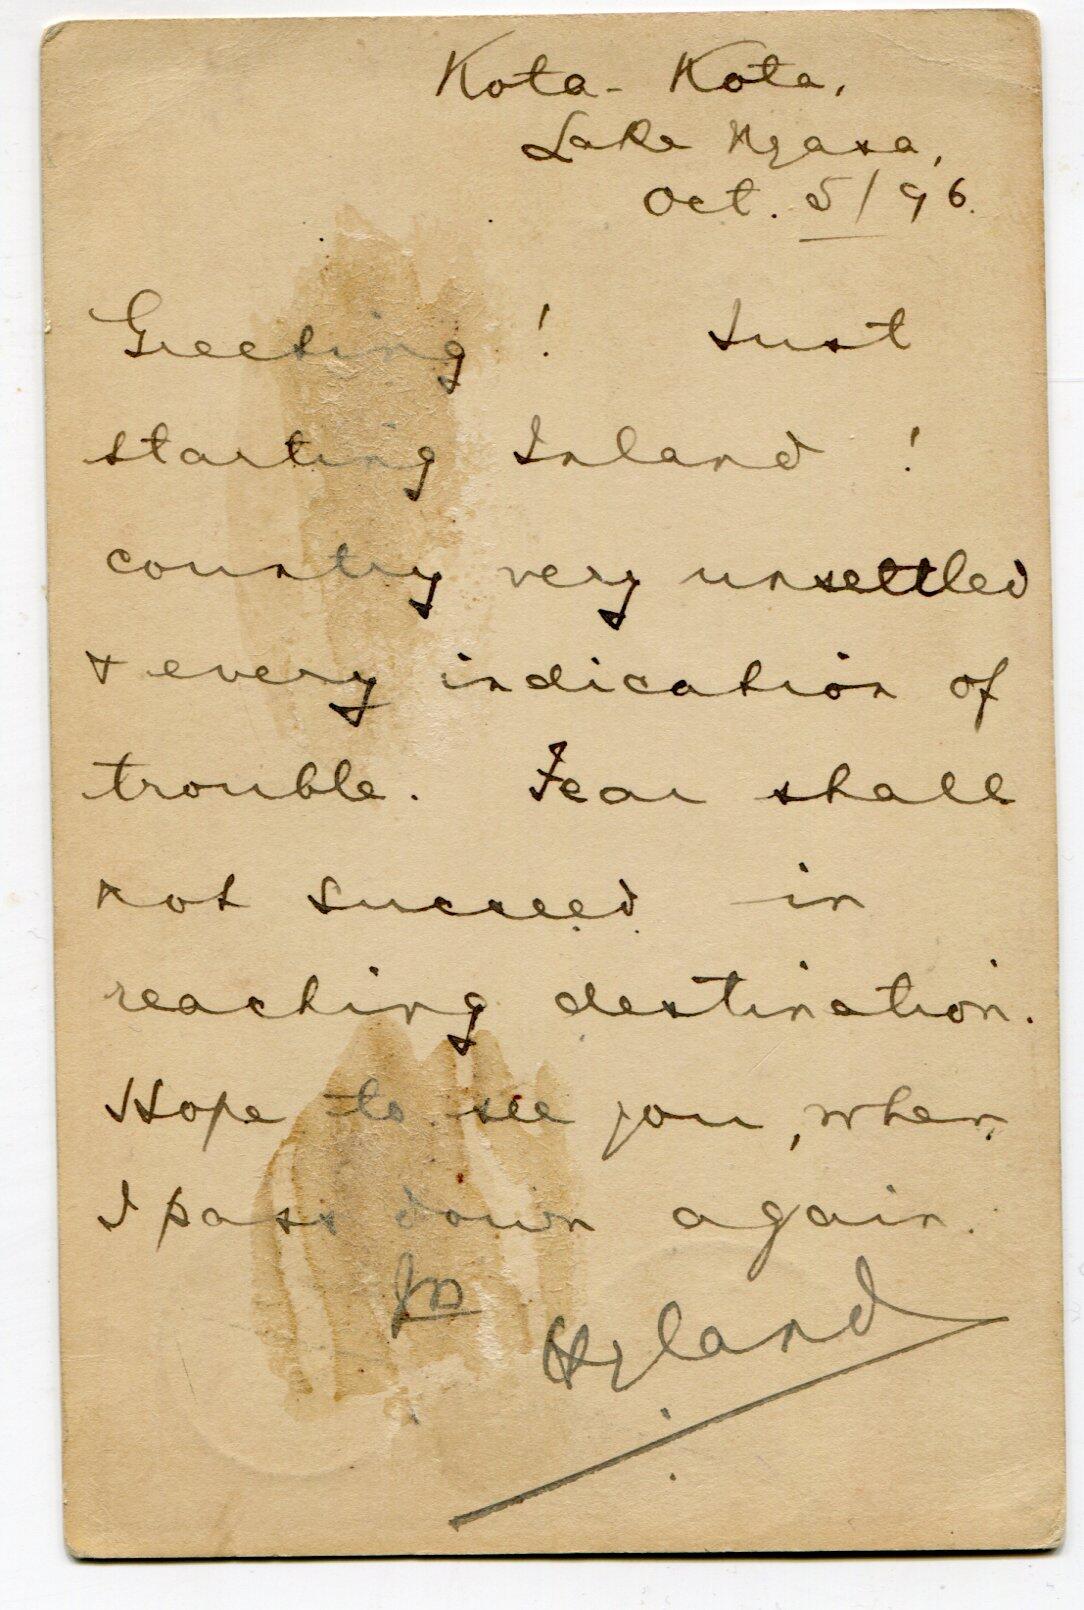 Kota-Kota,
Lake Nyasa,
Oct. 5/96.
Greeting! Just
starting Inland!
country very unsettled
+ every indication of
trouble. Fear shall
not succeed in
reaching destination.
Hope to see you, when
I pass down again.
Jn
Hyland